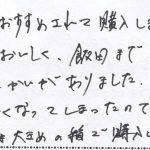 おすすめされて購入しま
おいしく、飯田まで
かいがありました。
くなってしまったので
大きめの箱で購入し